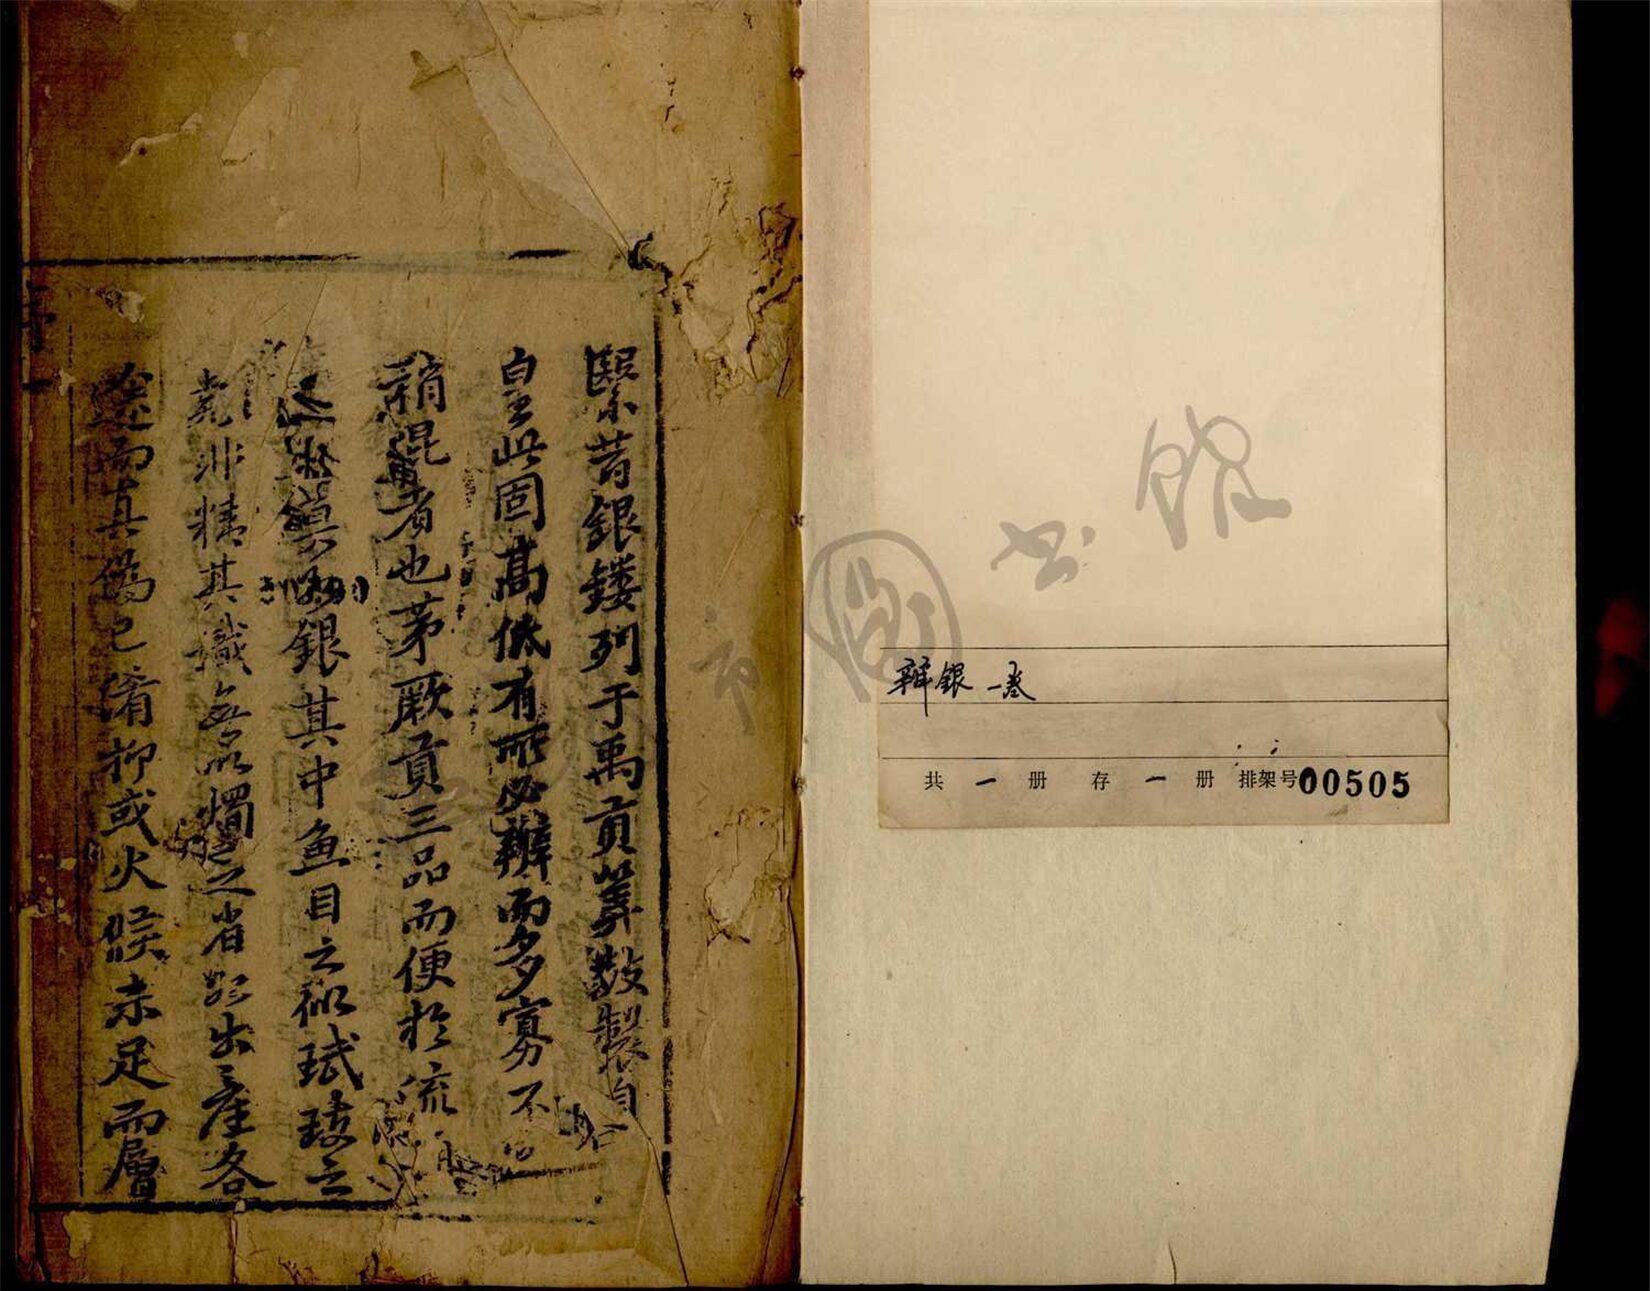 緊昔銀鏤列于禹貢筭數製自
皇王此固髙低有所必辨而多寡不
稍混者也茅厥貢三品而便於流
銀其中鱼目之似珷玞之
非精其識無以燭之省郡出産各
途而真偽已淆抑或火候未足而層
序
一
辨銀 一卷
共 一 册 存 一 册 排架号00505